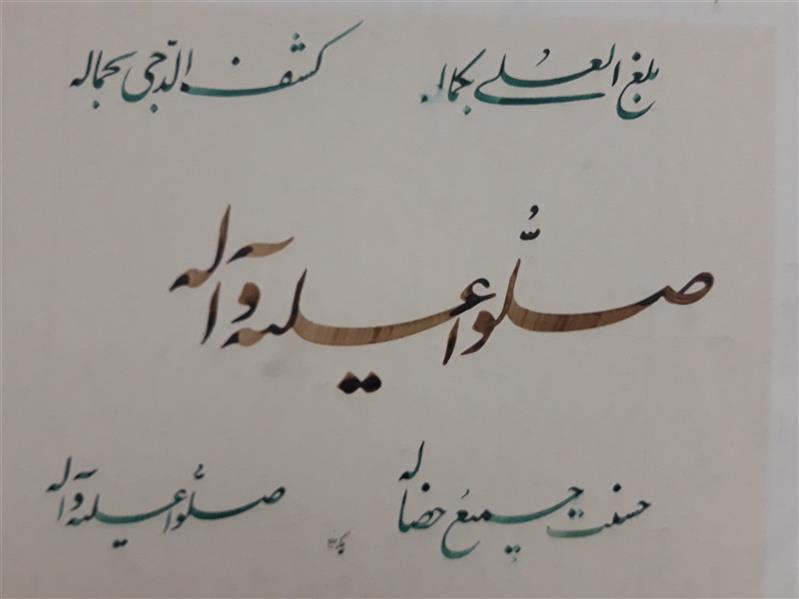 بلغ العُلی بکماله کشف الدّجی بجماله
صلُّوا علیه وآله
حسنت جمیعُ خصاله صلُّوا علیه وآله